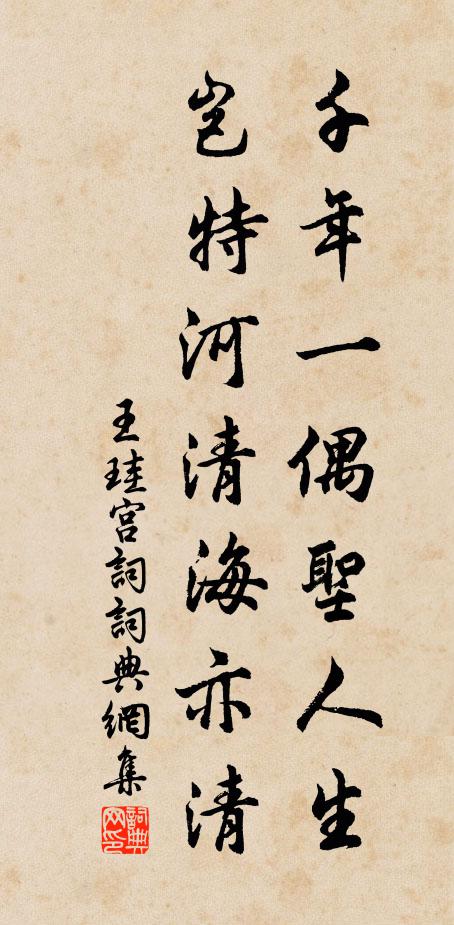 千年一偶聖人生
豈特河清海亦清
王珪宮詞詞典網集
詞典网印